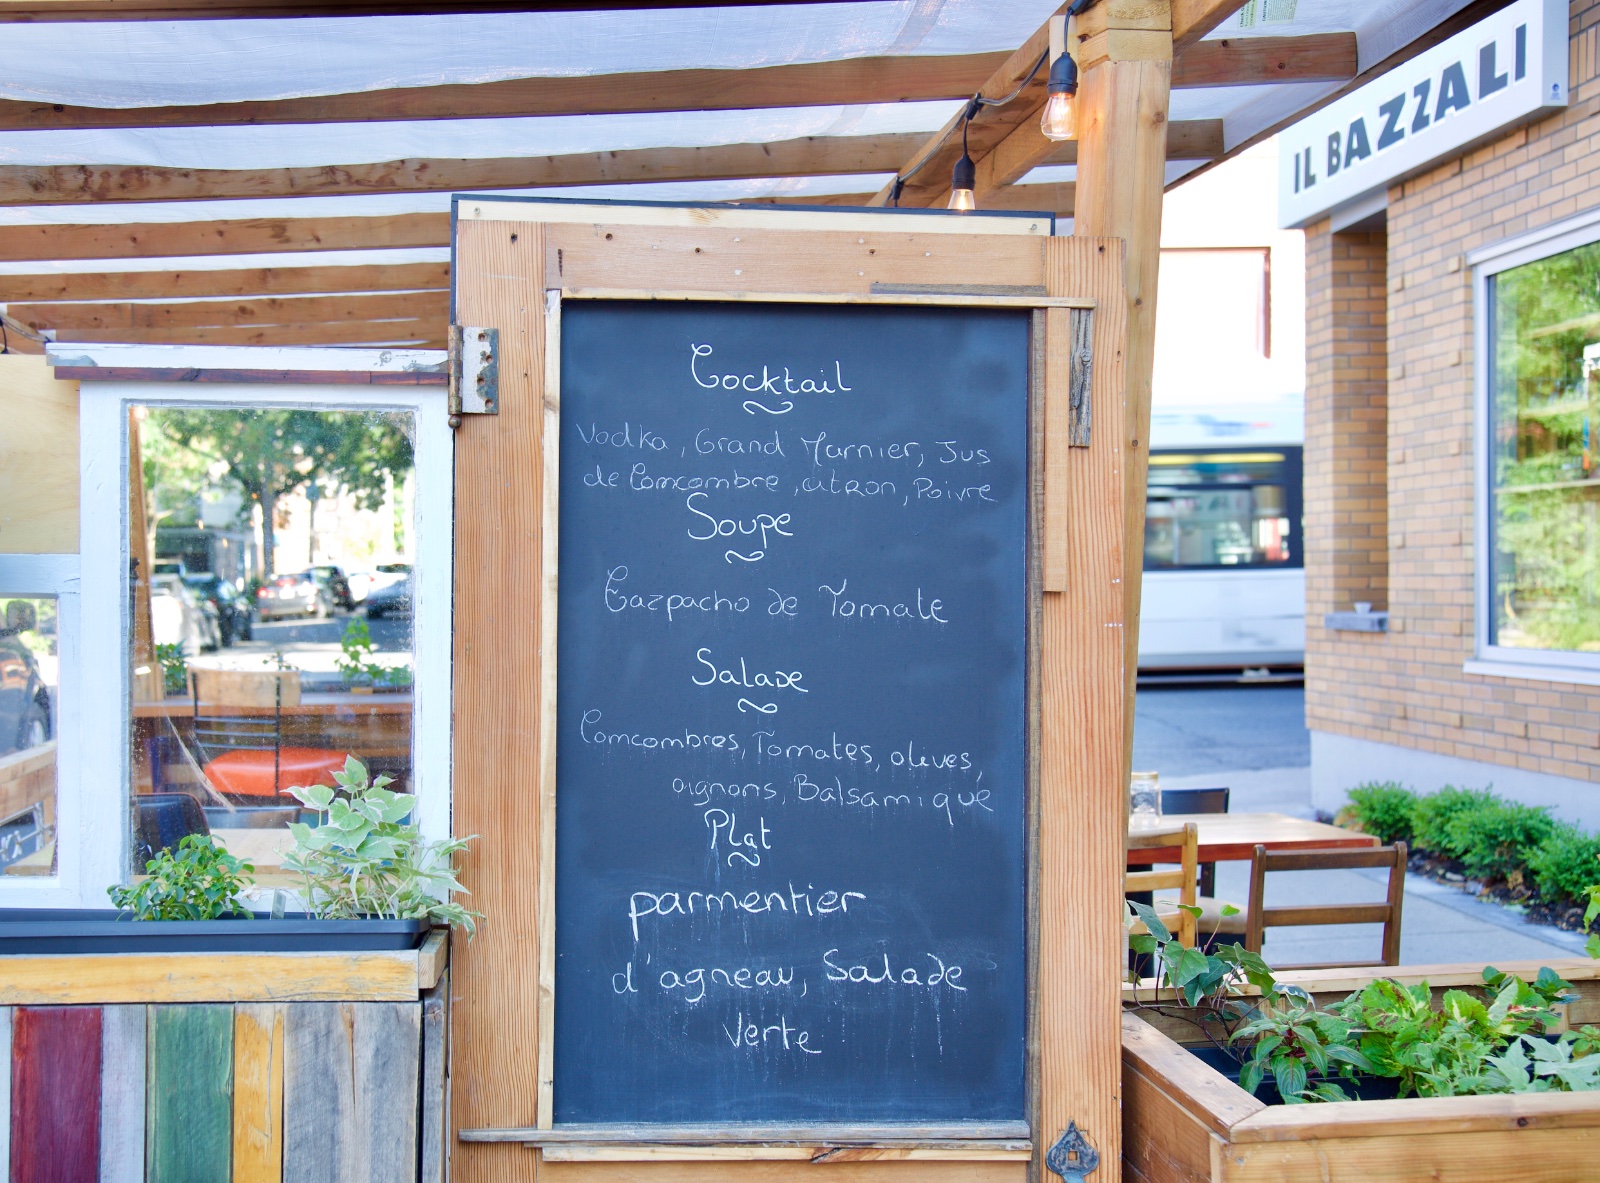 IL BAZZALI
Cocktail
Vodka, Grand Marnier, Jus
de Comcombre, citron, Poivre
Soupe
Gazpacho de Tomate
Salade
Comcombres, Tomates, olives,
oignons, Balsamique
Plat
parmentier
d'agneau, Salade
Verte